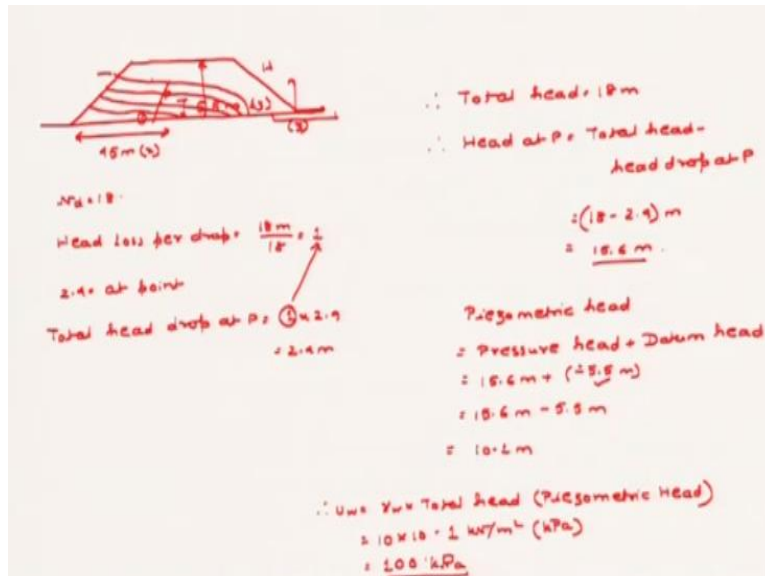 H
(y)
45m (x)
(z)
Nd = 18.
Head Loss per drop = 18m/18 = 1
2.4 = at point
Total head drop at P = 1 x 2.4
= 2.4 m
∴ Total head = 18 m
∴ Head at P = Total head -
head drop at P
= (18 - 2.4) m
= 15.6 m.
Piezometric head
= Pressure head + Datum head
= 15.6 m + (-5.5 m)
= 15.6 m - 5.5 m
= 10.1 m
∴ Uw = γw x Total head (Piezometric Head)
= 10 x 10.1 kN/m² (kPa)
= 100 kPa